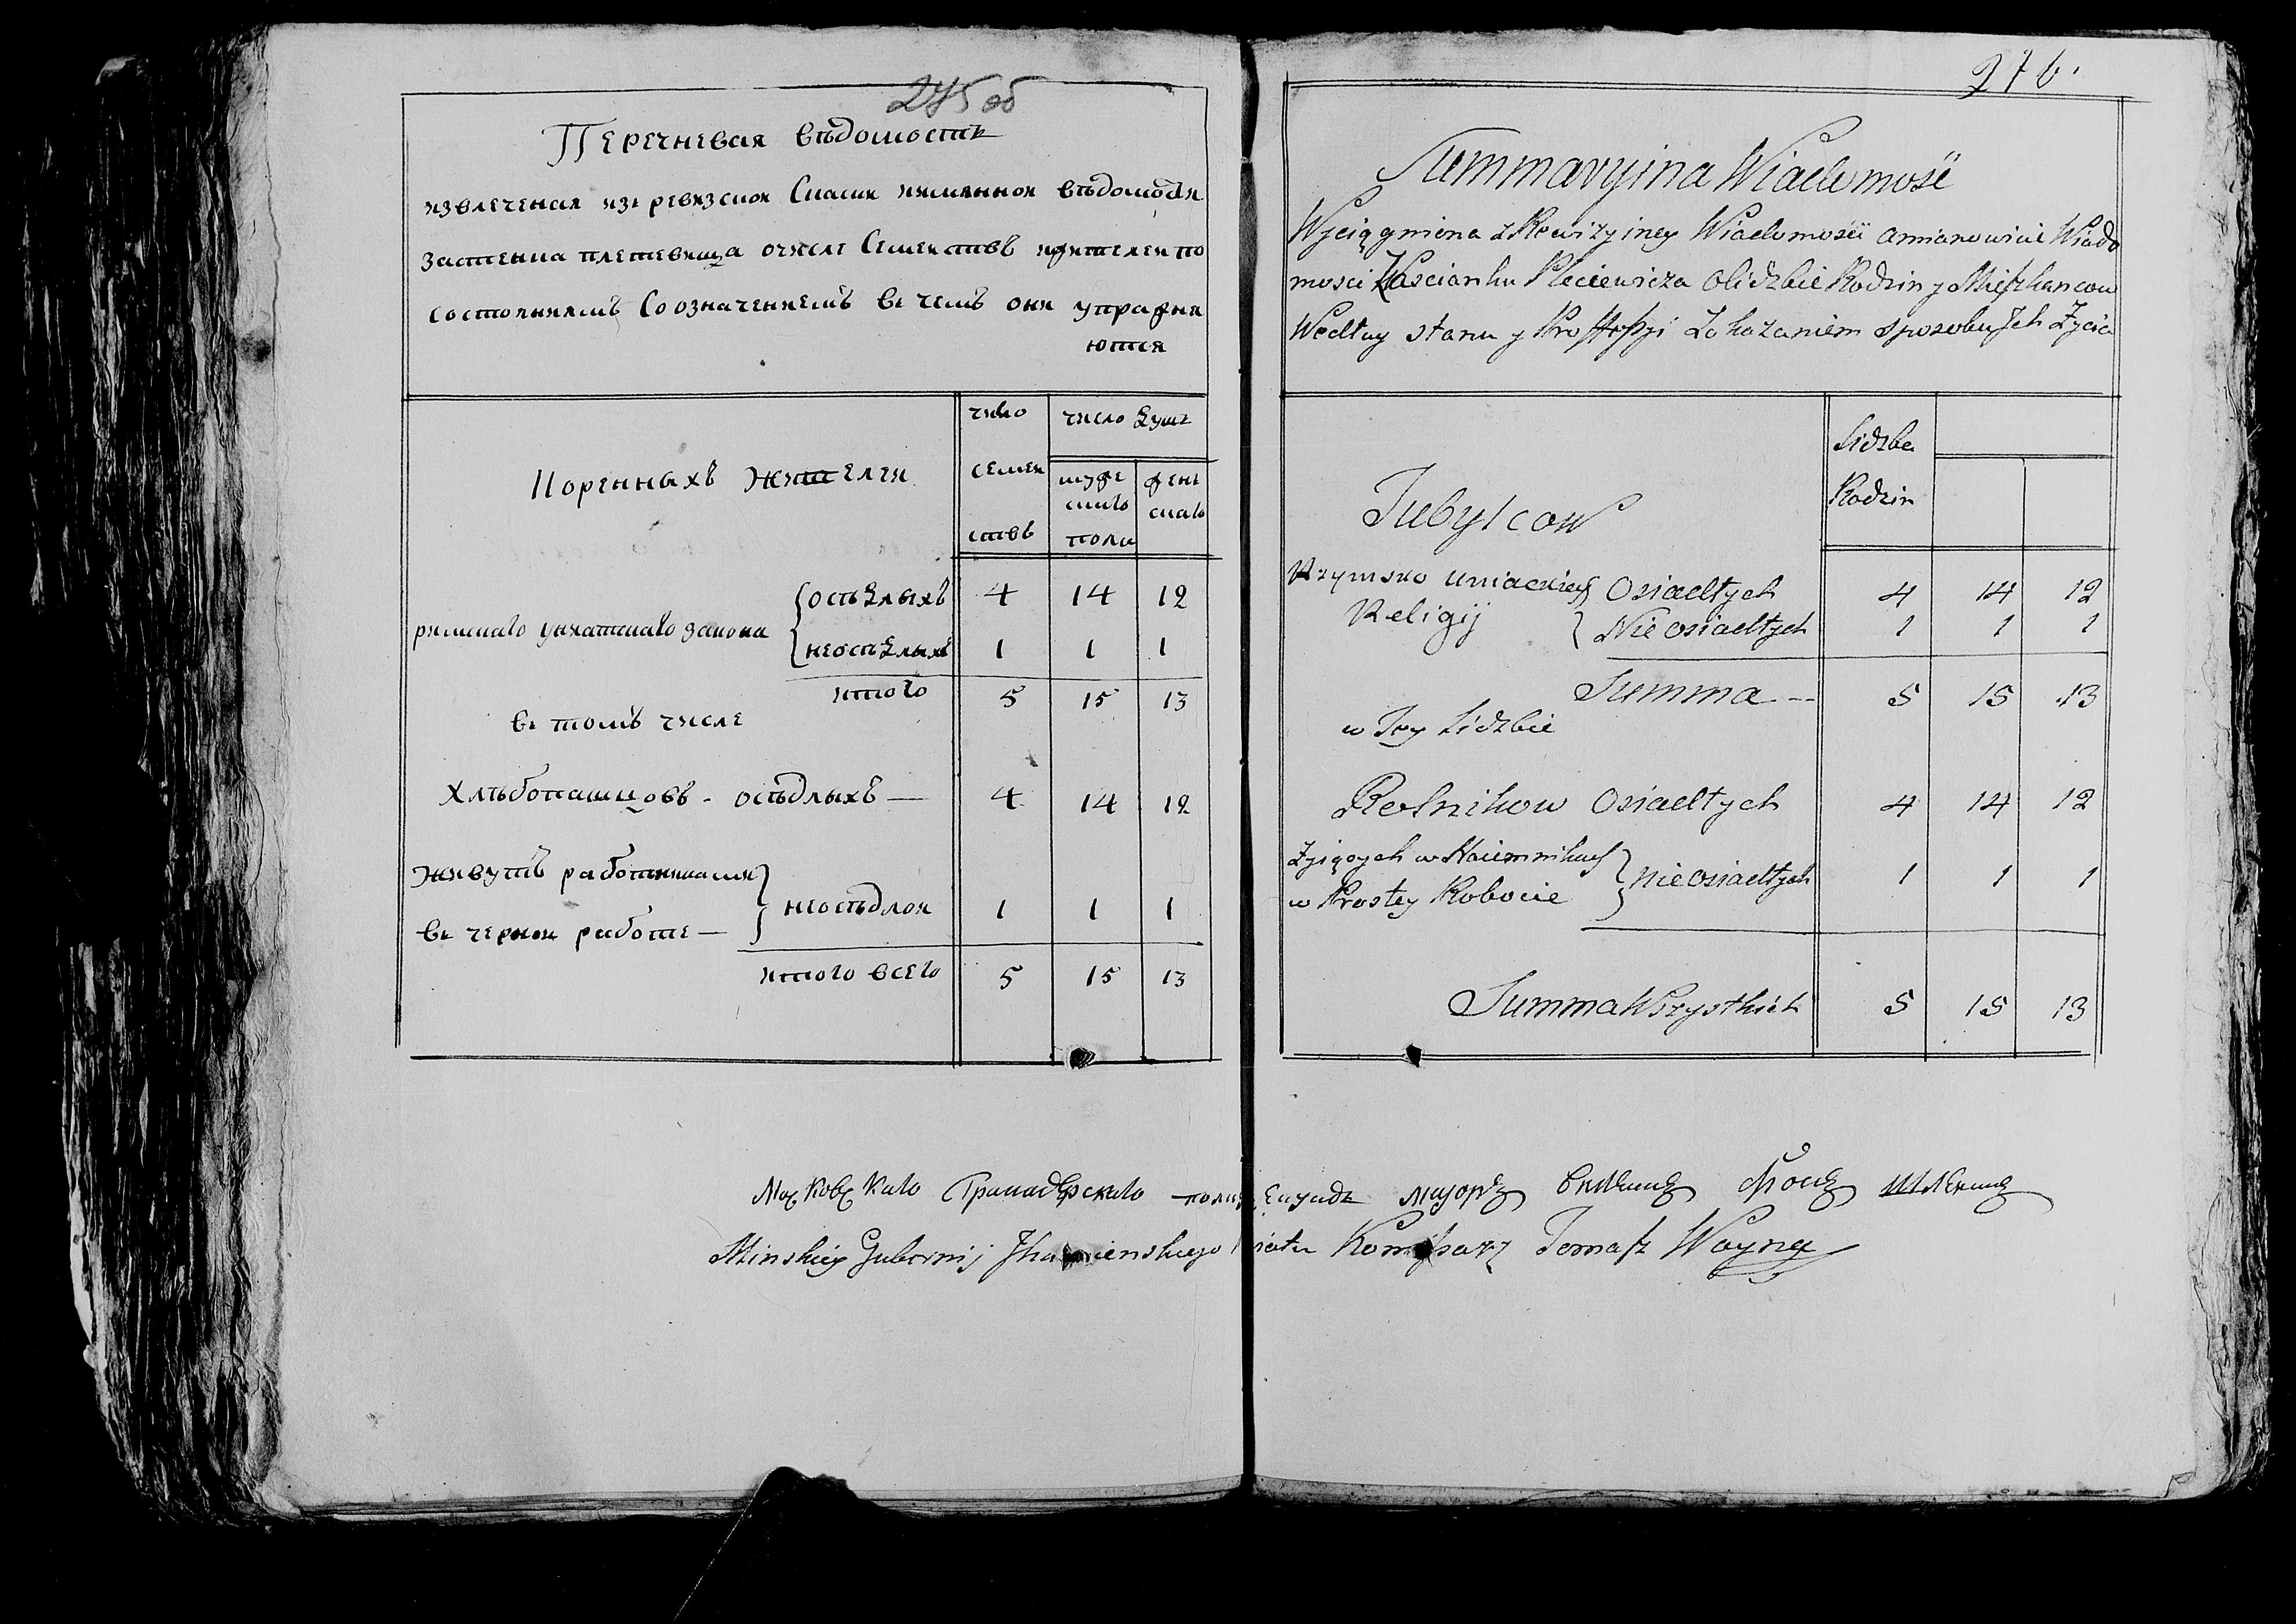 275 об
Перечневая вѣдомость
извлеченая изъ ревизскои Скаски имяннои вѣдомости
застенка плетевища очисле Семеиствъ ижителеи по
состояниямъ Соозначениемъ въ чемъ они упражня
ются
Коренныхъ жителеи
число семеиствъ
число душъ
мужескаго полу
женскаго
римскаго униатскаго закона
осѣдлыхъ 4 14 12
неосѣдлыхъ 1 1 1
итого 5 15 13
въ томъ числе
Хлѣбопашцовъ - осѣдлыхъ — 4 14 12
живутъ работниками
въ чернои работе —
неосѣдлои 1 1 1
итого всего 5 15 13
276.
Summaryina Wiadomość
Wyciągniona z Rewizyiney Wiadomości amianowicie Wiado
mosci Zascianku Pleciewicza o lidzbie Rodzin y Mięszkancow
Według stanu y Proffessyi Zokazaniem sposobu Ich Życia
Tubylcow
Lidzba
Rodzin
Rzymsko uniackiey
Religij
Osiadłych 4 14 12
Nie osiadłych 1 1 1
Summa -- 5 15 13
w Tey Lidzbie
Rolnikow Osiadłych 4 14 12
Zyiących w Naiemnikach
w Prostey Robocie
nieosiadłych 1 1 1
Summa Wszystkich 5 15 13
Московскаго Гранадерскаго полку Секундъ маіоръ
Minskiey Gubernij Ihumienskiego Powiatu Komissarz Tomasz Wayna